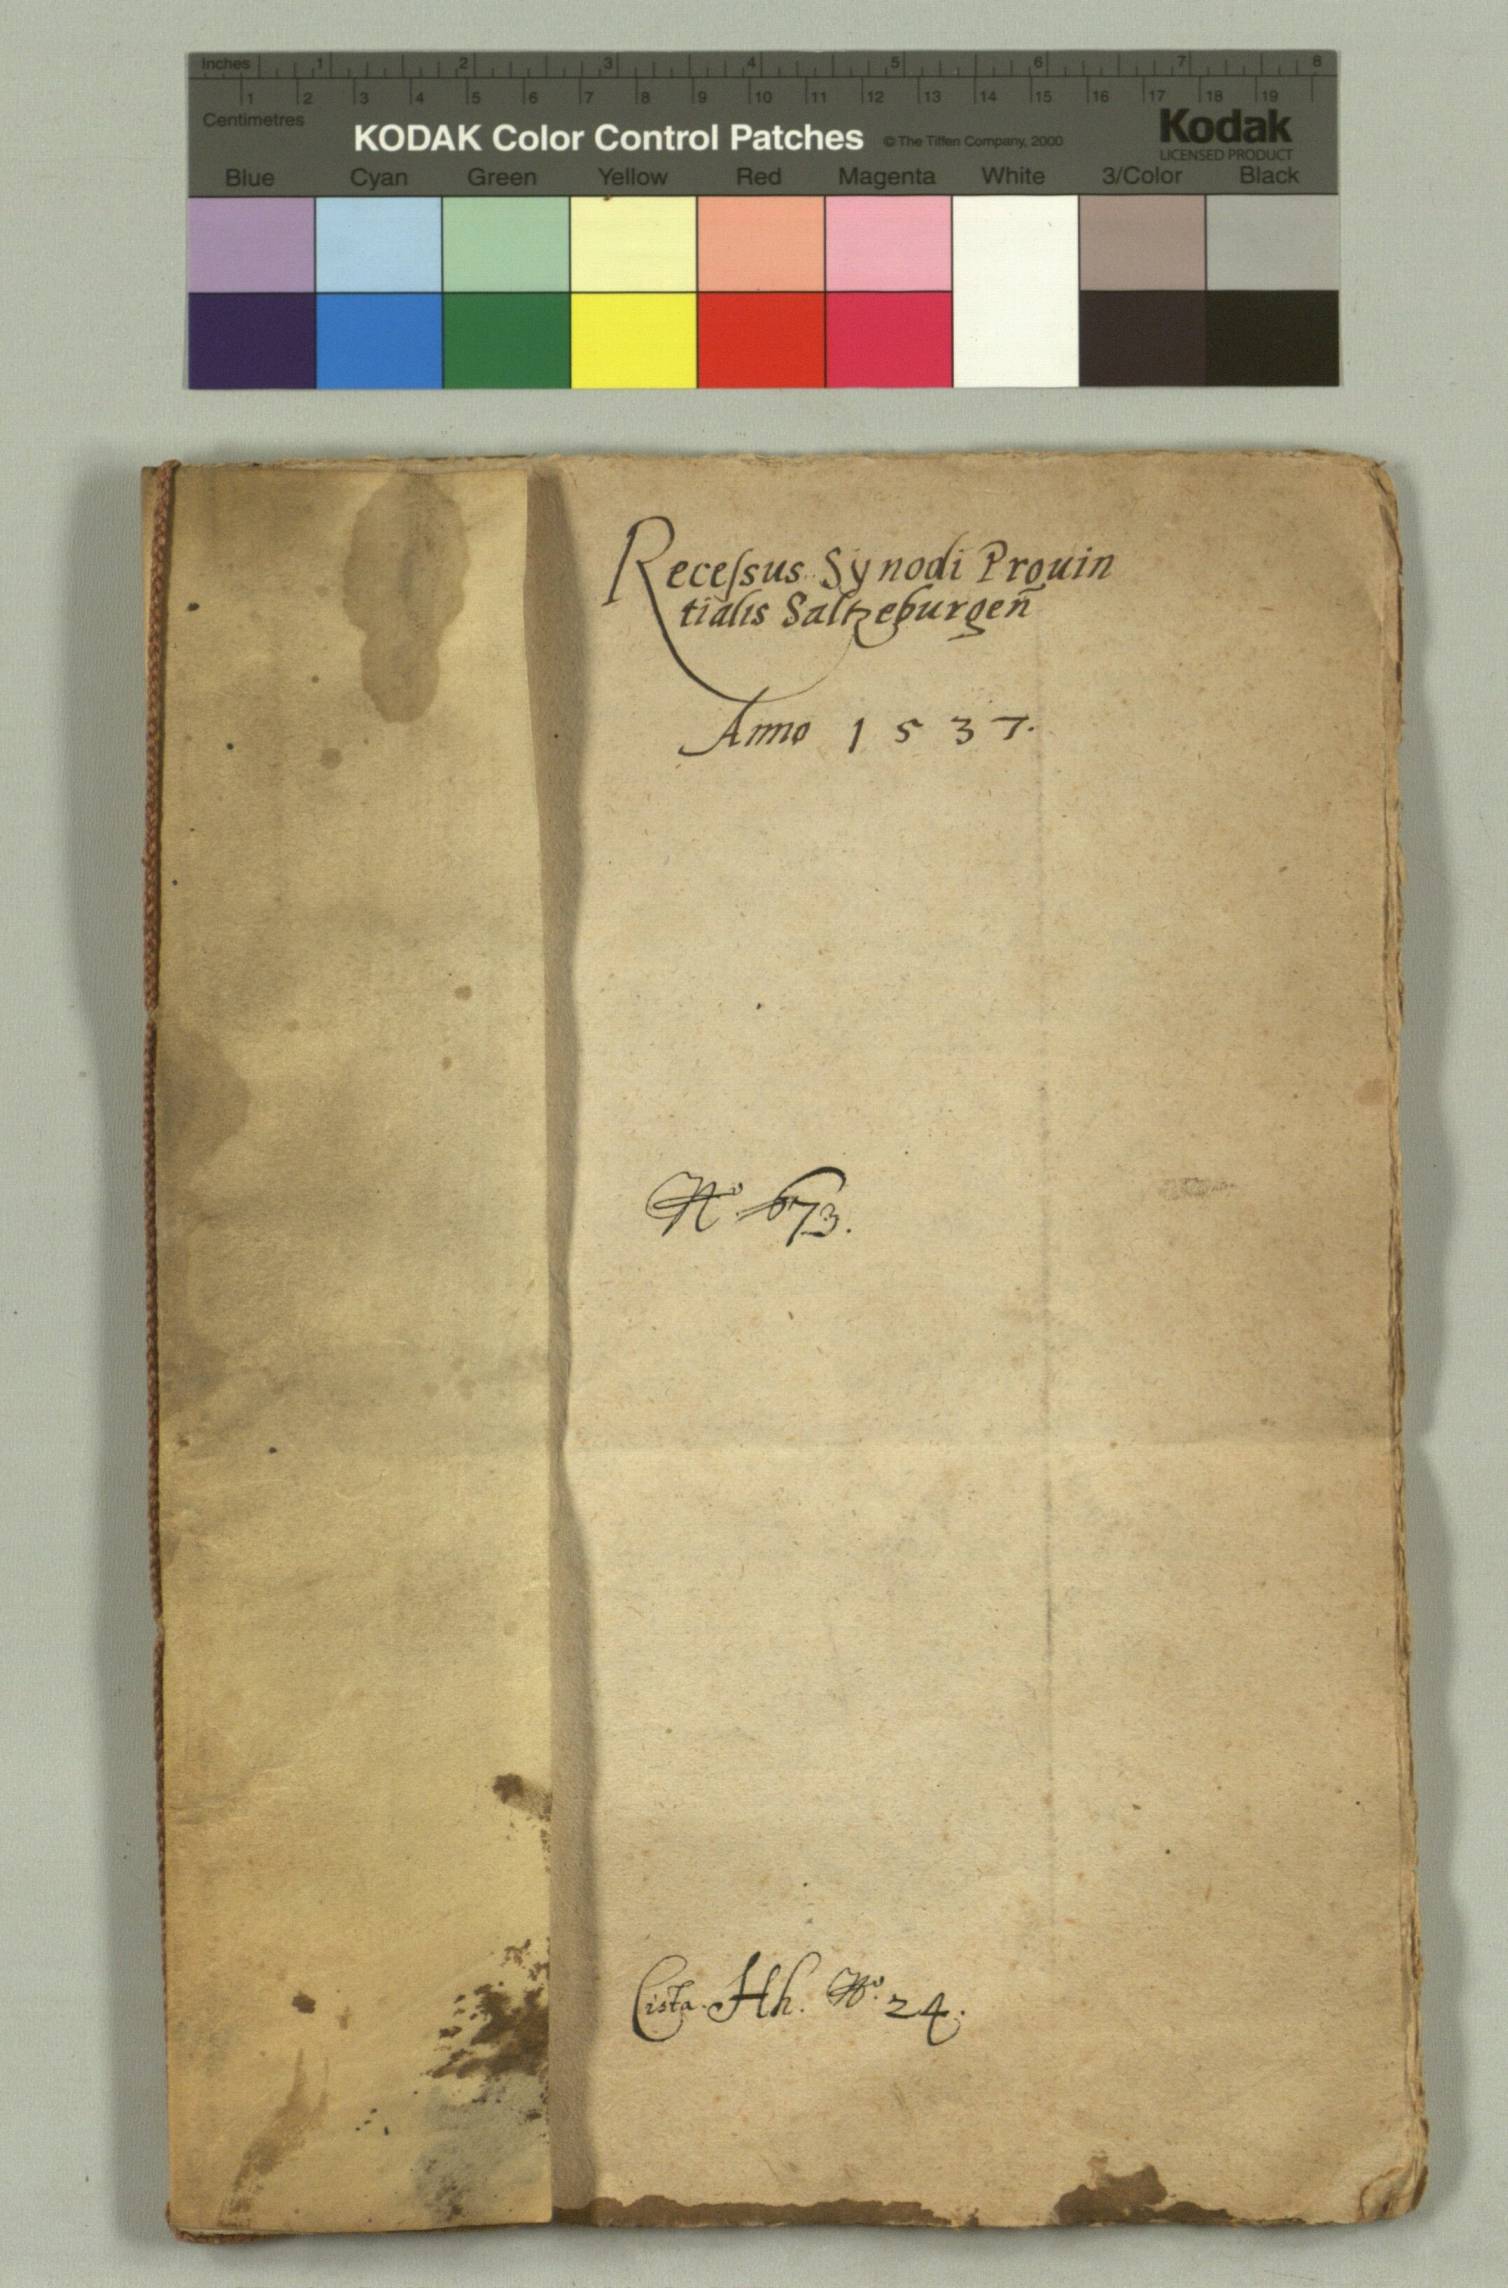 Inches 1 2 3 4 5 6 7 8
1 2 3 4 5 6 7 8 9 10 11 12 13 14 15 16 17 18 19
Centimetres
KODAK Color Control Patches © The Tiffen Company, 2000 Kodak
LICENSED PRODUCT
Blue Cyan Green Yellow Red Magenta White 3/Color Black
Receſsus Synodi Prouin
tialis Saltzeburgen̄
Anno 1537.
No. 673.
Cista. Hh. No. 24.